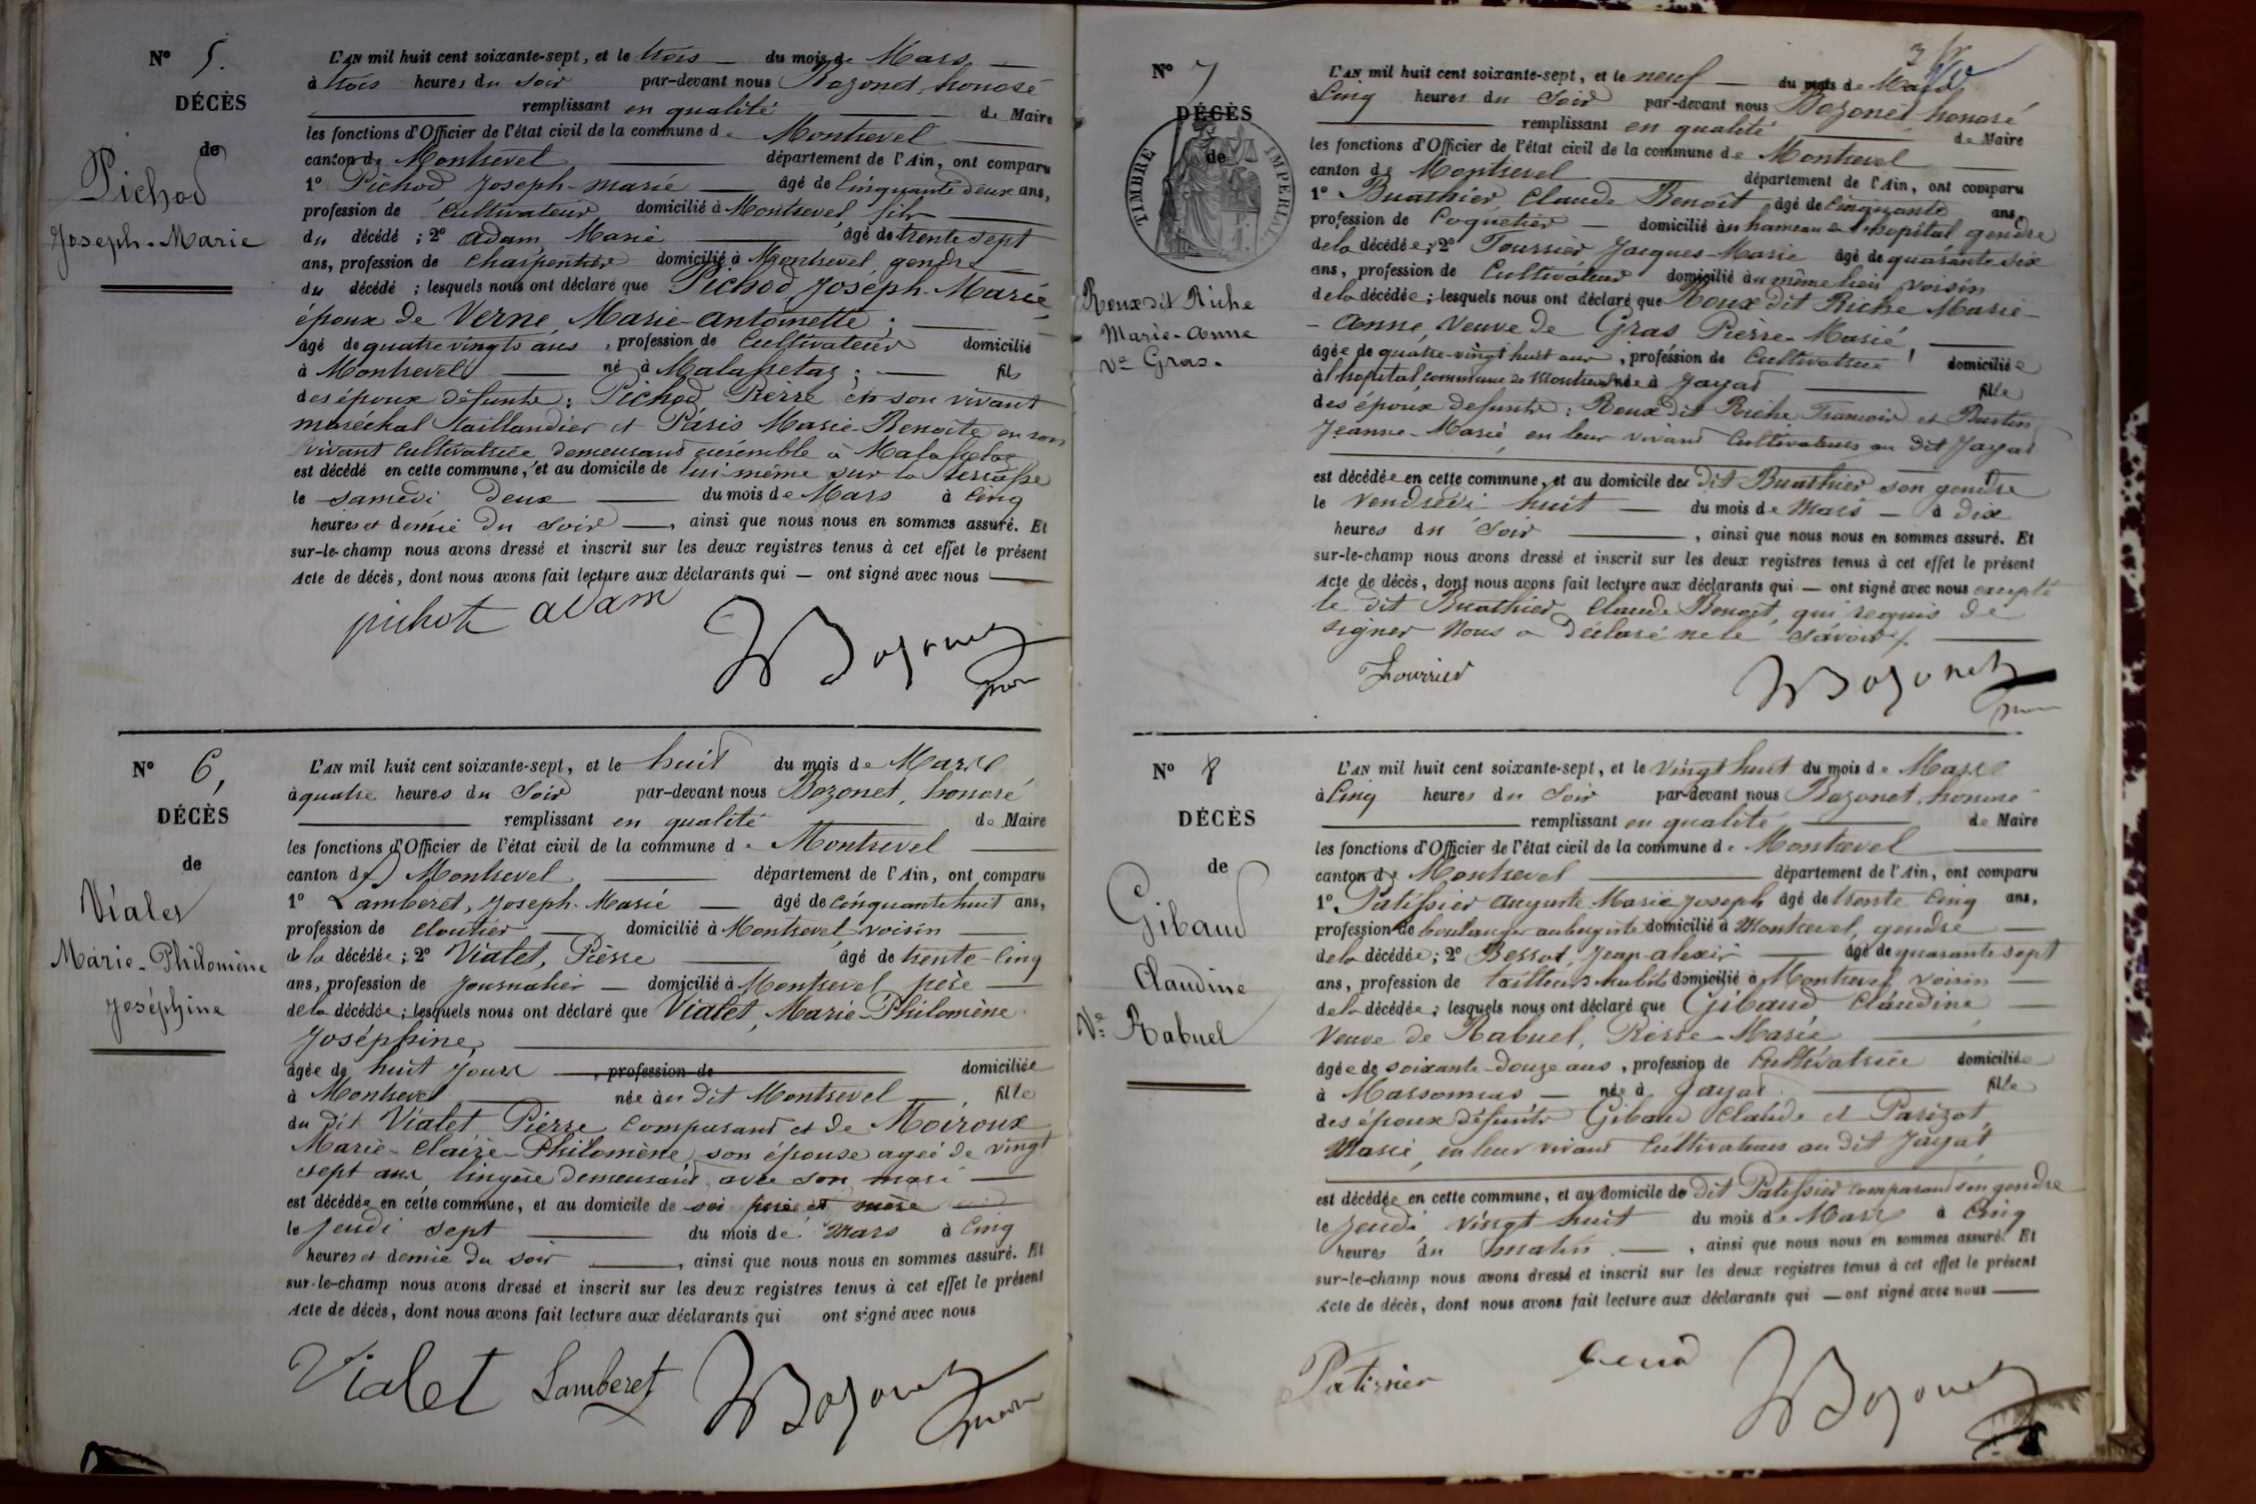 N° 5.
DÉCÈS
de
Pichod
Joseph-Marie
L'AN mil huit cent soixante-sept, et le trois du mois de Mars
à trois heures du soir par-devant nous Bozonet, honoré
remplissant en qualité de Maire
les fonctions d'Officier de l'état civil de la commune de Montrevel
canton de Montrevel département de l'Ain, ont comparu
1° Pichod Joseph-marie âgé de cinquante deux ans,
profession de cultivateur domicilié à Montrevel, fils
du décédé ; 2° adam, Marie âgé de trente sept
ans, profession de charpentier domicilié à Montrevel gendre
du décédé ; lesquels nous ont déclaré que Pichod, Joseph-Marie
époux de Verne, Marie-antoinette ;
âgé de quatre vingts ans, profession de Cultivateur domicilié
à Montrevel né à Malafretaz ; fils
des époux défunts ; Pichod Pierre en son vivant
maréchal taillandier et Pâris Marie-Benoite en son
vivant cultivatrice demeurant ensemble à Malafretaz
est décédé en cette commune, et au domicile de lui même sur la terrasse
le samedi deux du mois de Mars à cinq
heures et demie du soir, ainsi que nous nous en sommes assuré. Et
sur-le-champ nous avons dressé et inscrit sur les deux registres tenus à cet effet le présent
Acte de décès, dont nous avons fait lecture aux déclarants qui — ont signé avec nous
pichot adam Bozonet
N° 6,
DÉCÈS
de
Vialet
Marie-Philomène
Joséphine
L'AN mil huit cent soixante-sept, et le huit du mois de Mars
à quatre heures du soir par-devant nous Bozonet, honoré
remplissant en qualité de Maire
les fonctions d'Officier de l'état civil de la commune de Montrevel
canton de Montrevel département de l'Ain, ont comparu
1° Lamberet, Joseph-Marie âgé de cinquante huit ans,
profession de cloutier domicilié à Montrevel voisin
de la décédée ; 2° Vialet, Pierre âgé de trente-cinq
ans, profession de Journalier domicilié à Montrevel père
de la décédée ; lesquels nous ont déclaré que Vialet, Marie-Philomène
Joséphine,
âgée de huit jours, profession de domiciliée
à Montrevel née au dit Montrevel, fille
du dit Vialet Pierre comparant et de Moiroux
Marie-Claire-Philomène son épouse agée de vingt
sept ans, lingère demeurant avec son mari
est décédée en cette commune, et au domicile de ses père et mère
le jeudi sept du mois de Mars à cinq
heures et demie du soir, ainsi que nous nous en sommes assuré. Et
sur-le-champ nous avons dressé et inscrit sur les deux registres tenus à cet effet le présent
Acte de décès, dont nous avons fait lecture aux déclarants qui ont signé avec nous
Vialet Lamberet Bozonet
N° 7
DÉCÈS
de
TIMBRE IMPERIAL
Roux dit Riche
Marie-Anne
Ve Gras.
L'AN mil huit cent soixante-sept, et le neuf du mois de Mars
à Cinq heures du Soir par-devant nous Bozonet honoré
remplissant en qualité de Maire
les fonctions d'Officier de l'état civil de la commune de Montrevel
canton de Montrevel département de l'Ain, ont comparu
1° Buathier, Claude Benoit âgé de cinquante ans,
profession de Coquetier domicilié au hameau de l'hopital gendre
de la décédée ; 2° Fourrier Jacques-Marie âgé de quarante six
ans, profession de Cultivateur domicilié au même lieu voisin
de la décédée ; lesquels nous ont déclaré que Roux dit Riche Marie-
- Anne, Veuve de Gras Pierre-Marie,
âgée de quatre-vingt huit ans, profession de Cultivatrice domiciliée
à l'hopital, commune de Montrevel née à Jayat fille
des époux défunts : Roux dit Riche François et Burtin
Jeanne-Marie en leur vivant Cultivateurs au dit Jayat
est décédée en cette commune, et au domicile du dit Buathier son gendre
le Vendredi huit du mois de Mars à dix
heures du Soir, ainsi que nous nous en sommes assuré. Et
sur-le-champ nous avons dressé et inscrit sur les deux registres tenus à cet effet le présent
Acte de décès, dont nous avons fait lecture aux déclarants qui — ont signé avec nous excepté
le dit Buathier Claude Benoit, qui requis de
signer Nous a déclaré ne le savoir.
Fourrier Bozonet
N° 8
DÉCÈS
de
Gibaud
Claudine
Ve Rabuel
L'AN mil huit cent soixante-sept, et le vingt huit du mois de Mars
à Cinq heures du Soir par-devant nous Bozonet, honoré
remplissant en qualité de Maire
les fonctions d'Officier de l'état civil de la commune de Montrevel
canton de Montrevel département de l'Ain, ont comparu
1° Patissier auguste Marie Joseph âgé de trente cinq ans,
profession de boulanger aubergiste domicilié à Montrevel, gendre
de la décédée ; 2° Jean-alexis âgé de quarante sept
ans, profession de tailleur d'habits domicilié à Montrevel voisin
de la décédée ; lesquels nous ont déclaré que Gibaud Claudine
Veuve de Rabuel, Pierre-Marie
âgée de soixante-douze ans, profession de Cultivatrice domiciliée
à Marsonnas née à Jayat fille
des époux défunts Gibaud Claude et Parizot,
Marie, en leur vivant Cultivateurs au dit Jayat,
est décédée en cette commune, et au domicile du dit Patissier comparant son gendre
le jeudi vingt huit du mois de Mars à Cinq
heures du matin, ainsi que nous nous en sommes assuré. Et
sur-le-champ nous avons dressé et inscrit sur les deux registres tenus à cet effet le présent
Acte de décès, dont nous avons fait lecture aux déclarants qui — ont signé avec nous
Patissier Bozonet